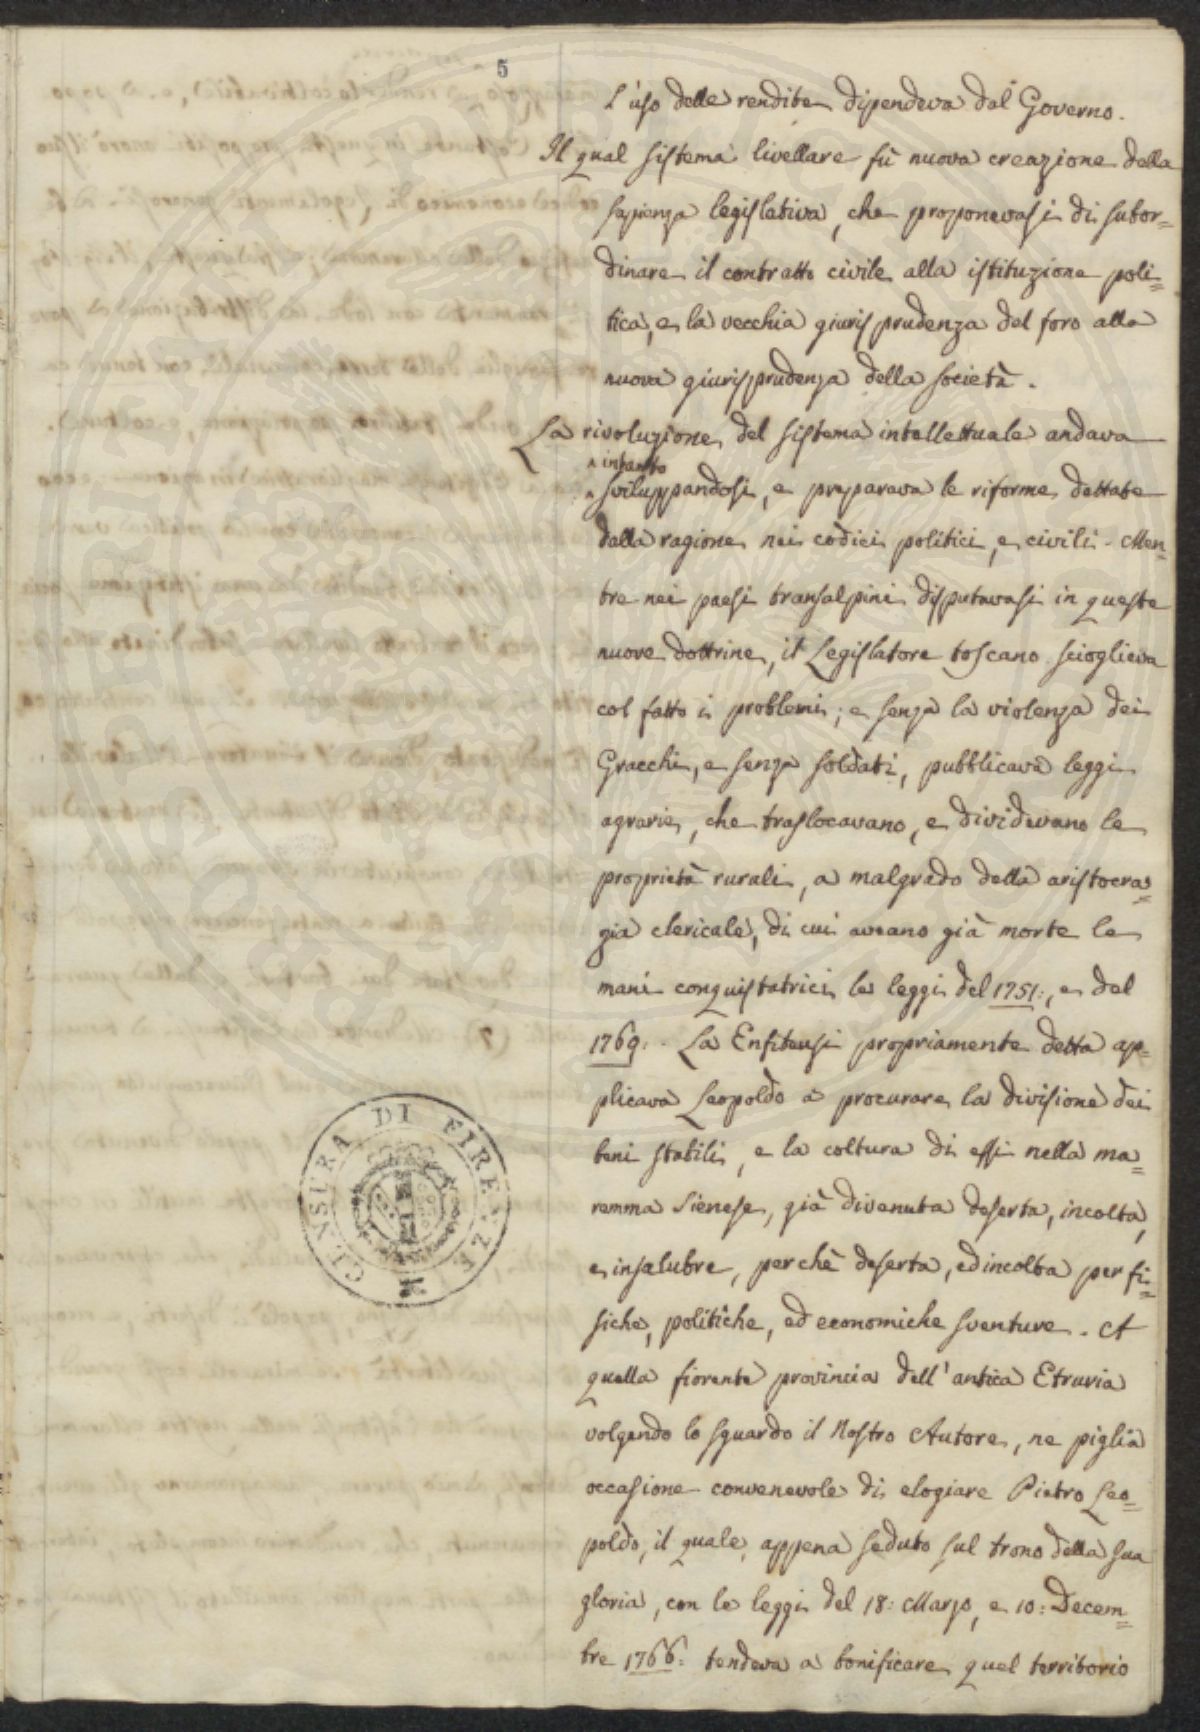 5
L'uso delle rendite dipendeva dal Governo.
Il qual sistema livellare fù nuova creazione della
sapienza legislativa, che proponevasi di subor=
dinare il contratto civile alla istituzione poli=
tica, e la vecchia giurisprudenza del foro alla
nuova giurisprudenza della società.
La rivoluzione del sistema intellettuale andava
intanto
sviluppandosi, e preparava le riforme dettate
dalla ragione nei codici politici, e civili. Men=
tre nei paesi transalpini disputavasi in queste
nuove dottrine, il Legislatore toscano scioglieva
col fatto i problemi; e senza la violenza dei
Gracchi, e senza soldati, pubblicava leggi
agrarie, che traslocavano, e dividevano le
proprietà rurali, a malgrado della aristocra=
zia clericale, di cui aveano già morte le
mani conquistatrici le leggi del 1751:, e del
1769: La Enfiteusi propriamente detta ap=
plicava Leopoldo a procurare la divisione dei
beni stabili, e la coltura di essi nella ma=
remma Sienese, già divenuta deserta, incolta,
e insalubre, perchè deserta, ed incolta per fi=
siche, politiche, ed economiche sventure. A
quella fiorente provincia dell'antica Etruria
volgendo lo sguardo il Nostro Autore, ne piglia
occasione convenevole di elogiare Pietro Leo=
poldo, il quale, appena seduto sul trono della sua
gloria, con le leggi del 18: Marzo, e 10: Decem=
bre 1766: tendeva a bonificare quel territorio
CENSURA DI FIRENZE